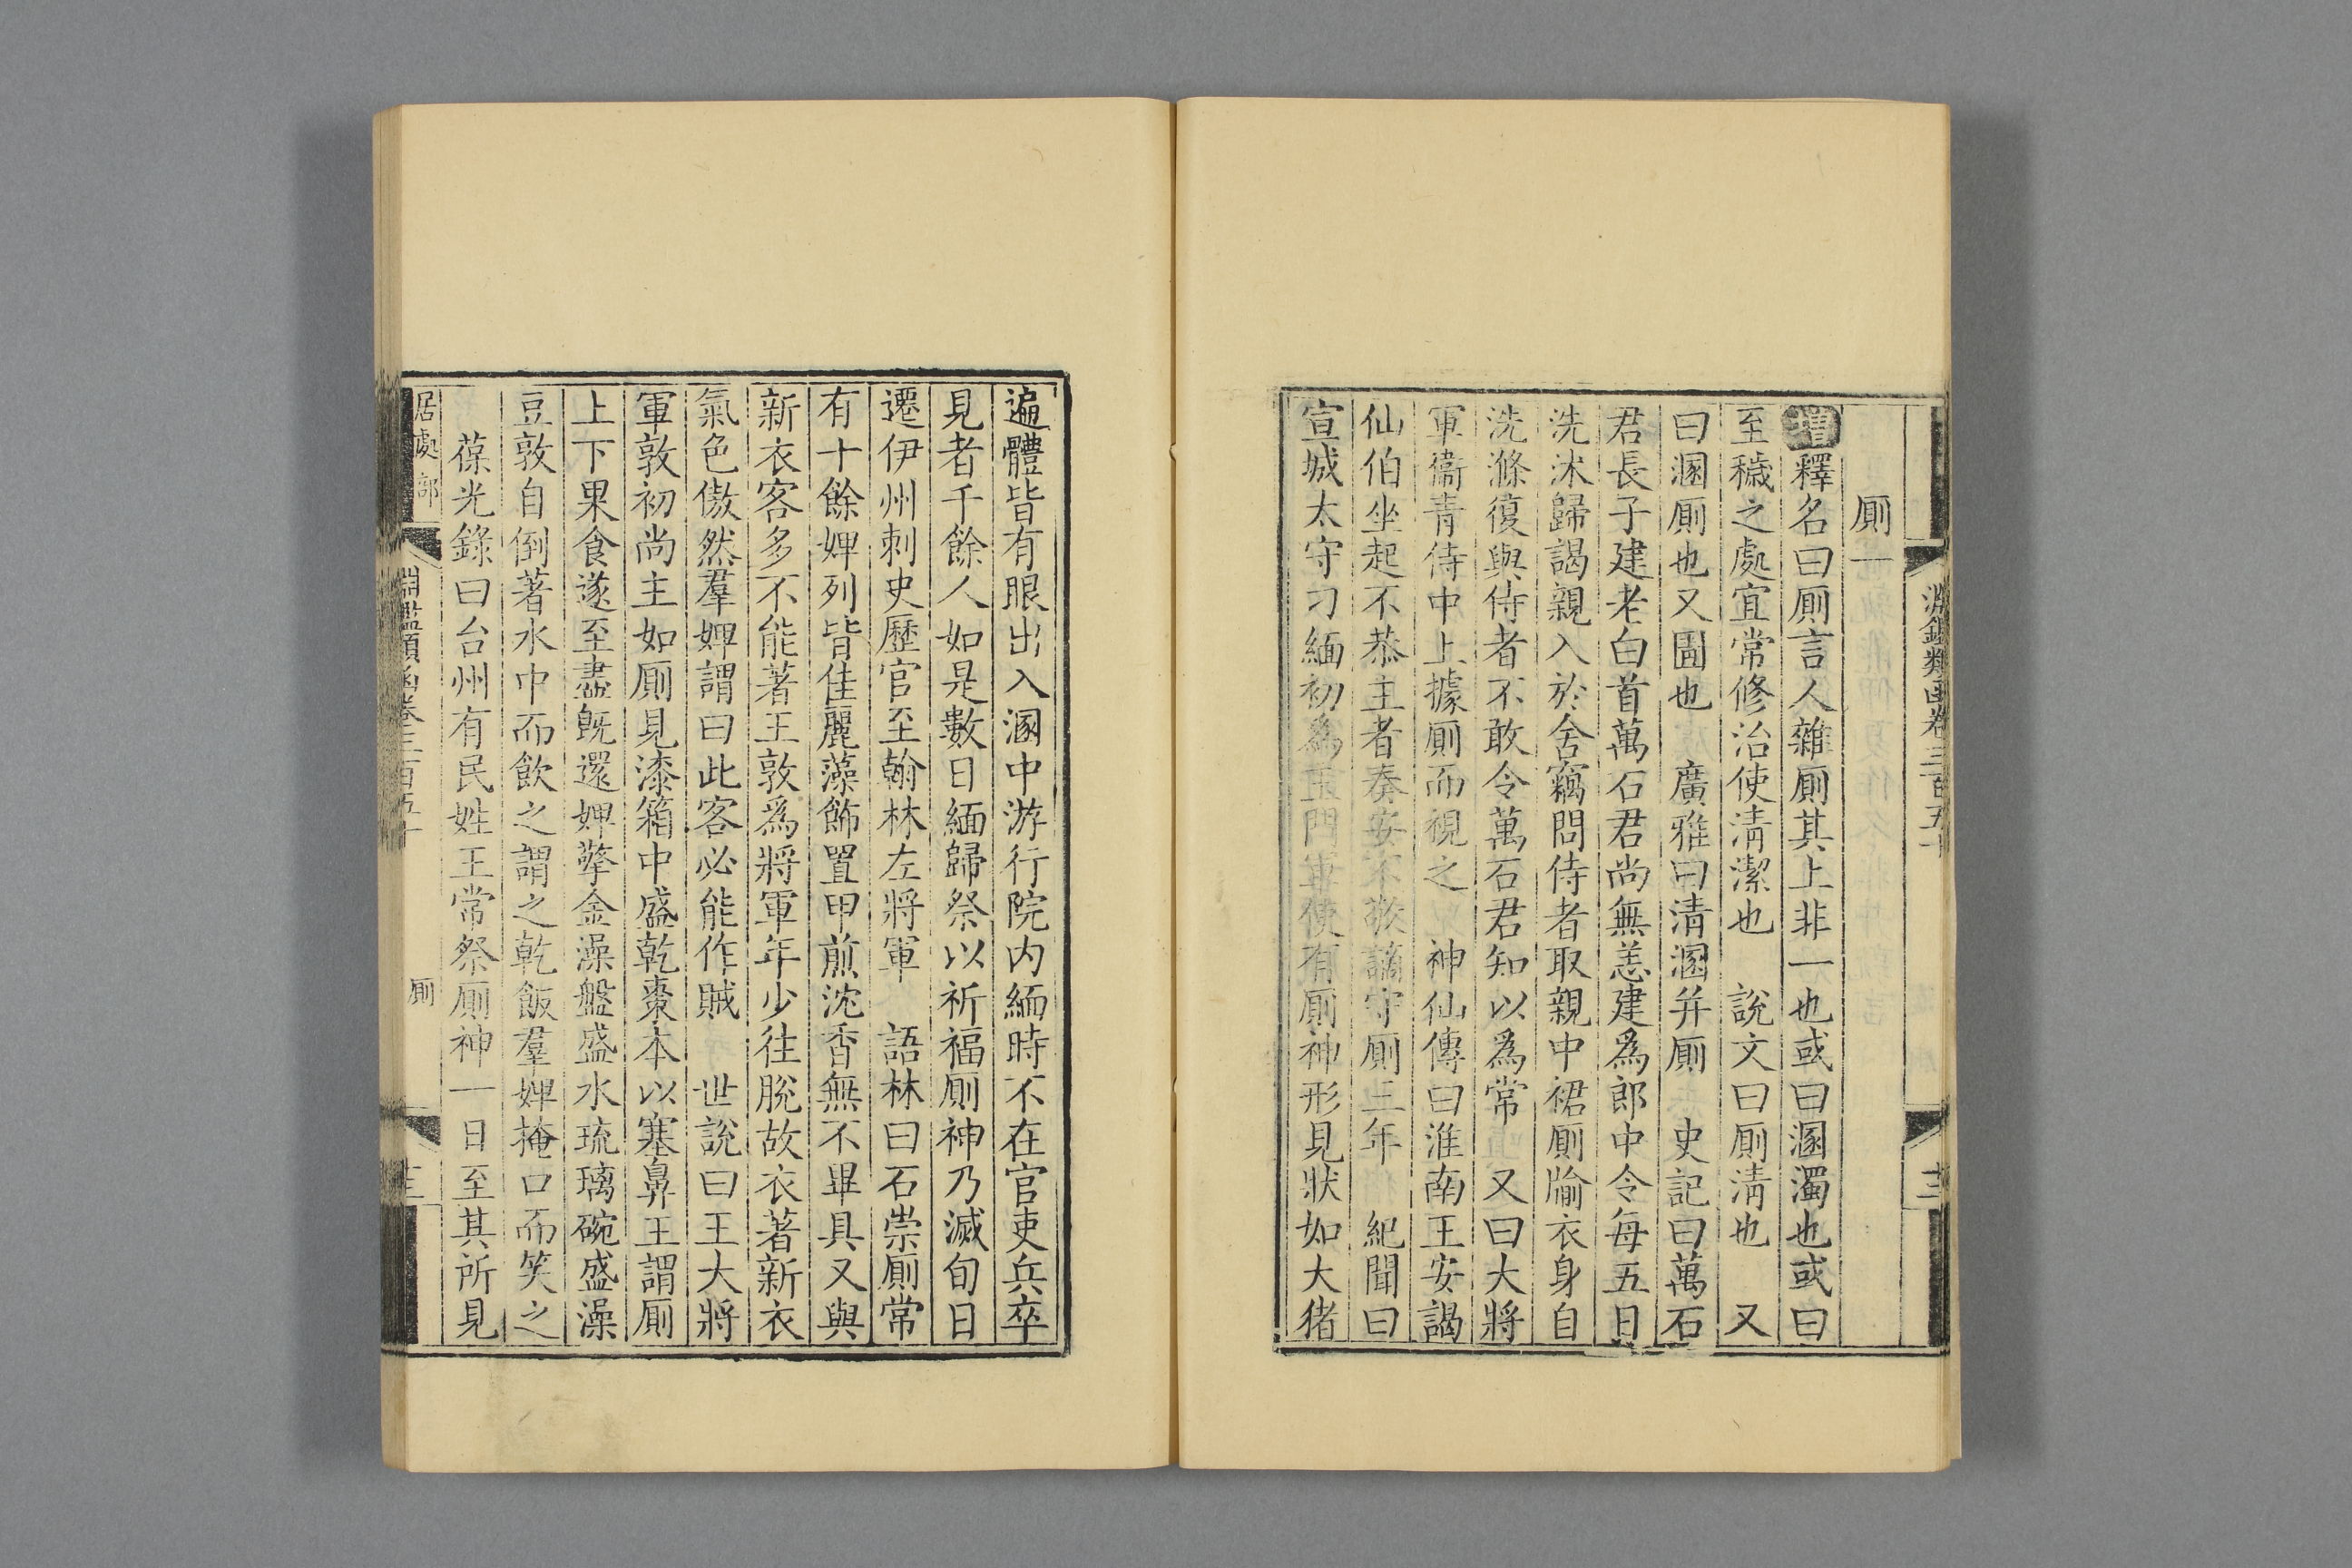 淵鑑類函卷三百五十
厠一
增釋名曰厠言人雜厠其上非一也或曰溷濁也或曰
至穢之處宜常修治使淸潔也 說文曰厠淸也 又
曰溷厠也又圊也 廣雅曰清溷并厠 史記曰萬石
君長子建老白首萬石君尚無恙建爲郎中令每五日
洗沐歸謁親入於舍竊問侍者取親中裙厠牏衣身自
洗滌復與侍者不敢令萬石君知以爲常 又曰大將
軍衞青侍中上據厠而視之 神仙傳曰淮南王安謁
仙伯坐起不恭主者奏安不敬謫守厠三年 紀聞曰
宣城太守刁緬初爲玉門軍使有厠神形見狀如大猪
遍體皆有眼出入溷中游行院内緬時不在官吏兵卒
見者千餘人如是數日緬歸祭以祈福厠神乃滅旬日
遷伊州刺史歷官至翰林左將軍 語林曰石崇厠常
有十餘婢列皆佳麗藻飾置甲煎沈香無不畢具又與
新衣客多不能著王敦爲將軍年少往脫故衣著新衣
氣色傲然羣婢謂曰此客必能作賊 世說曰王大將
軍敦初尚主如厠見漆箱中盛乾棗本以塞鼻王謂厠
上下果食遂至盡旣還婢擎金澡盤盛水琉璃碗盛澡
豆敦自倒著水中而飲之謂之乾飯羣婢掩口而笑之
葆光錄曰台州有民姓王常祭厠神一日至其所見
居處部 淵鑑類函卷三百五十 厠